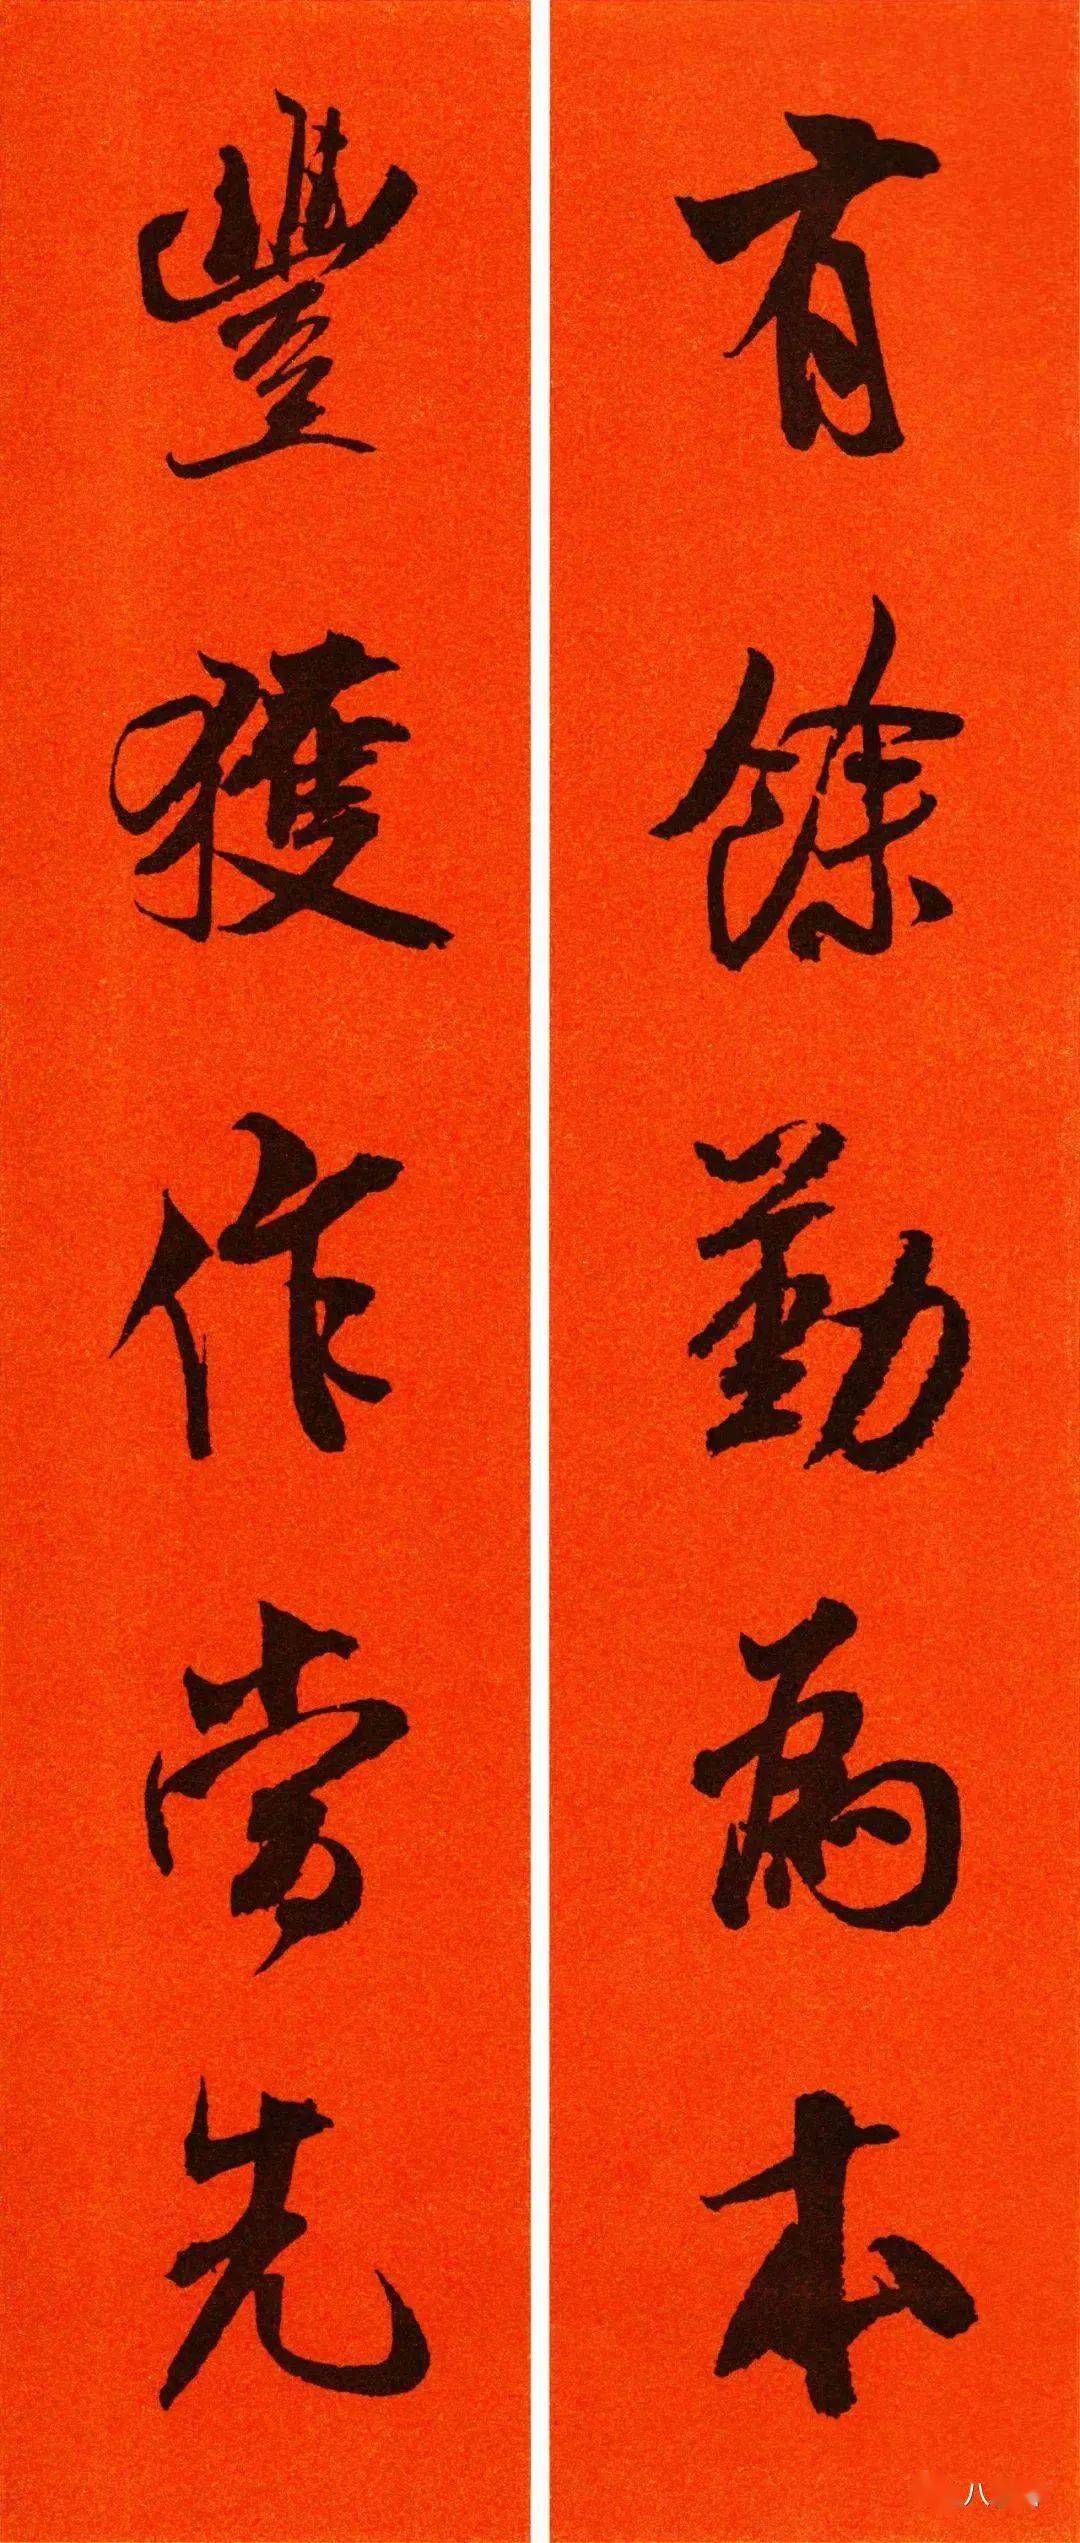 有餘勤為本
豐獲作當先